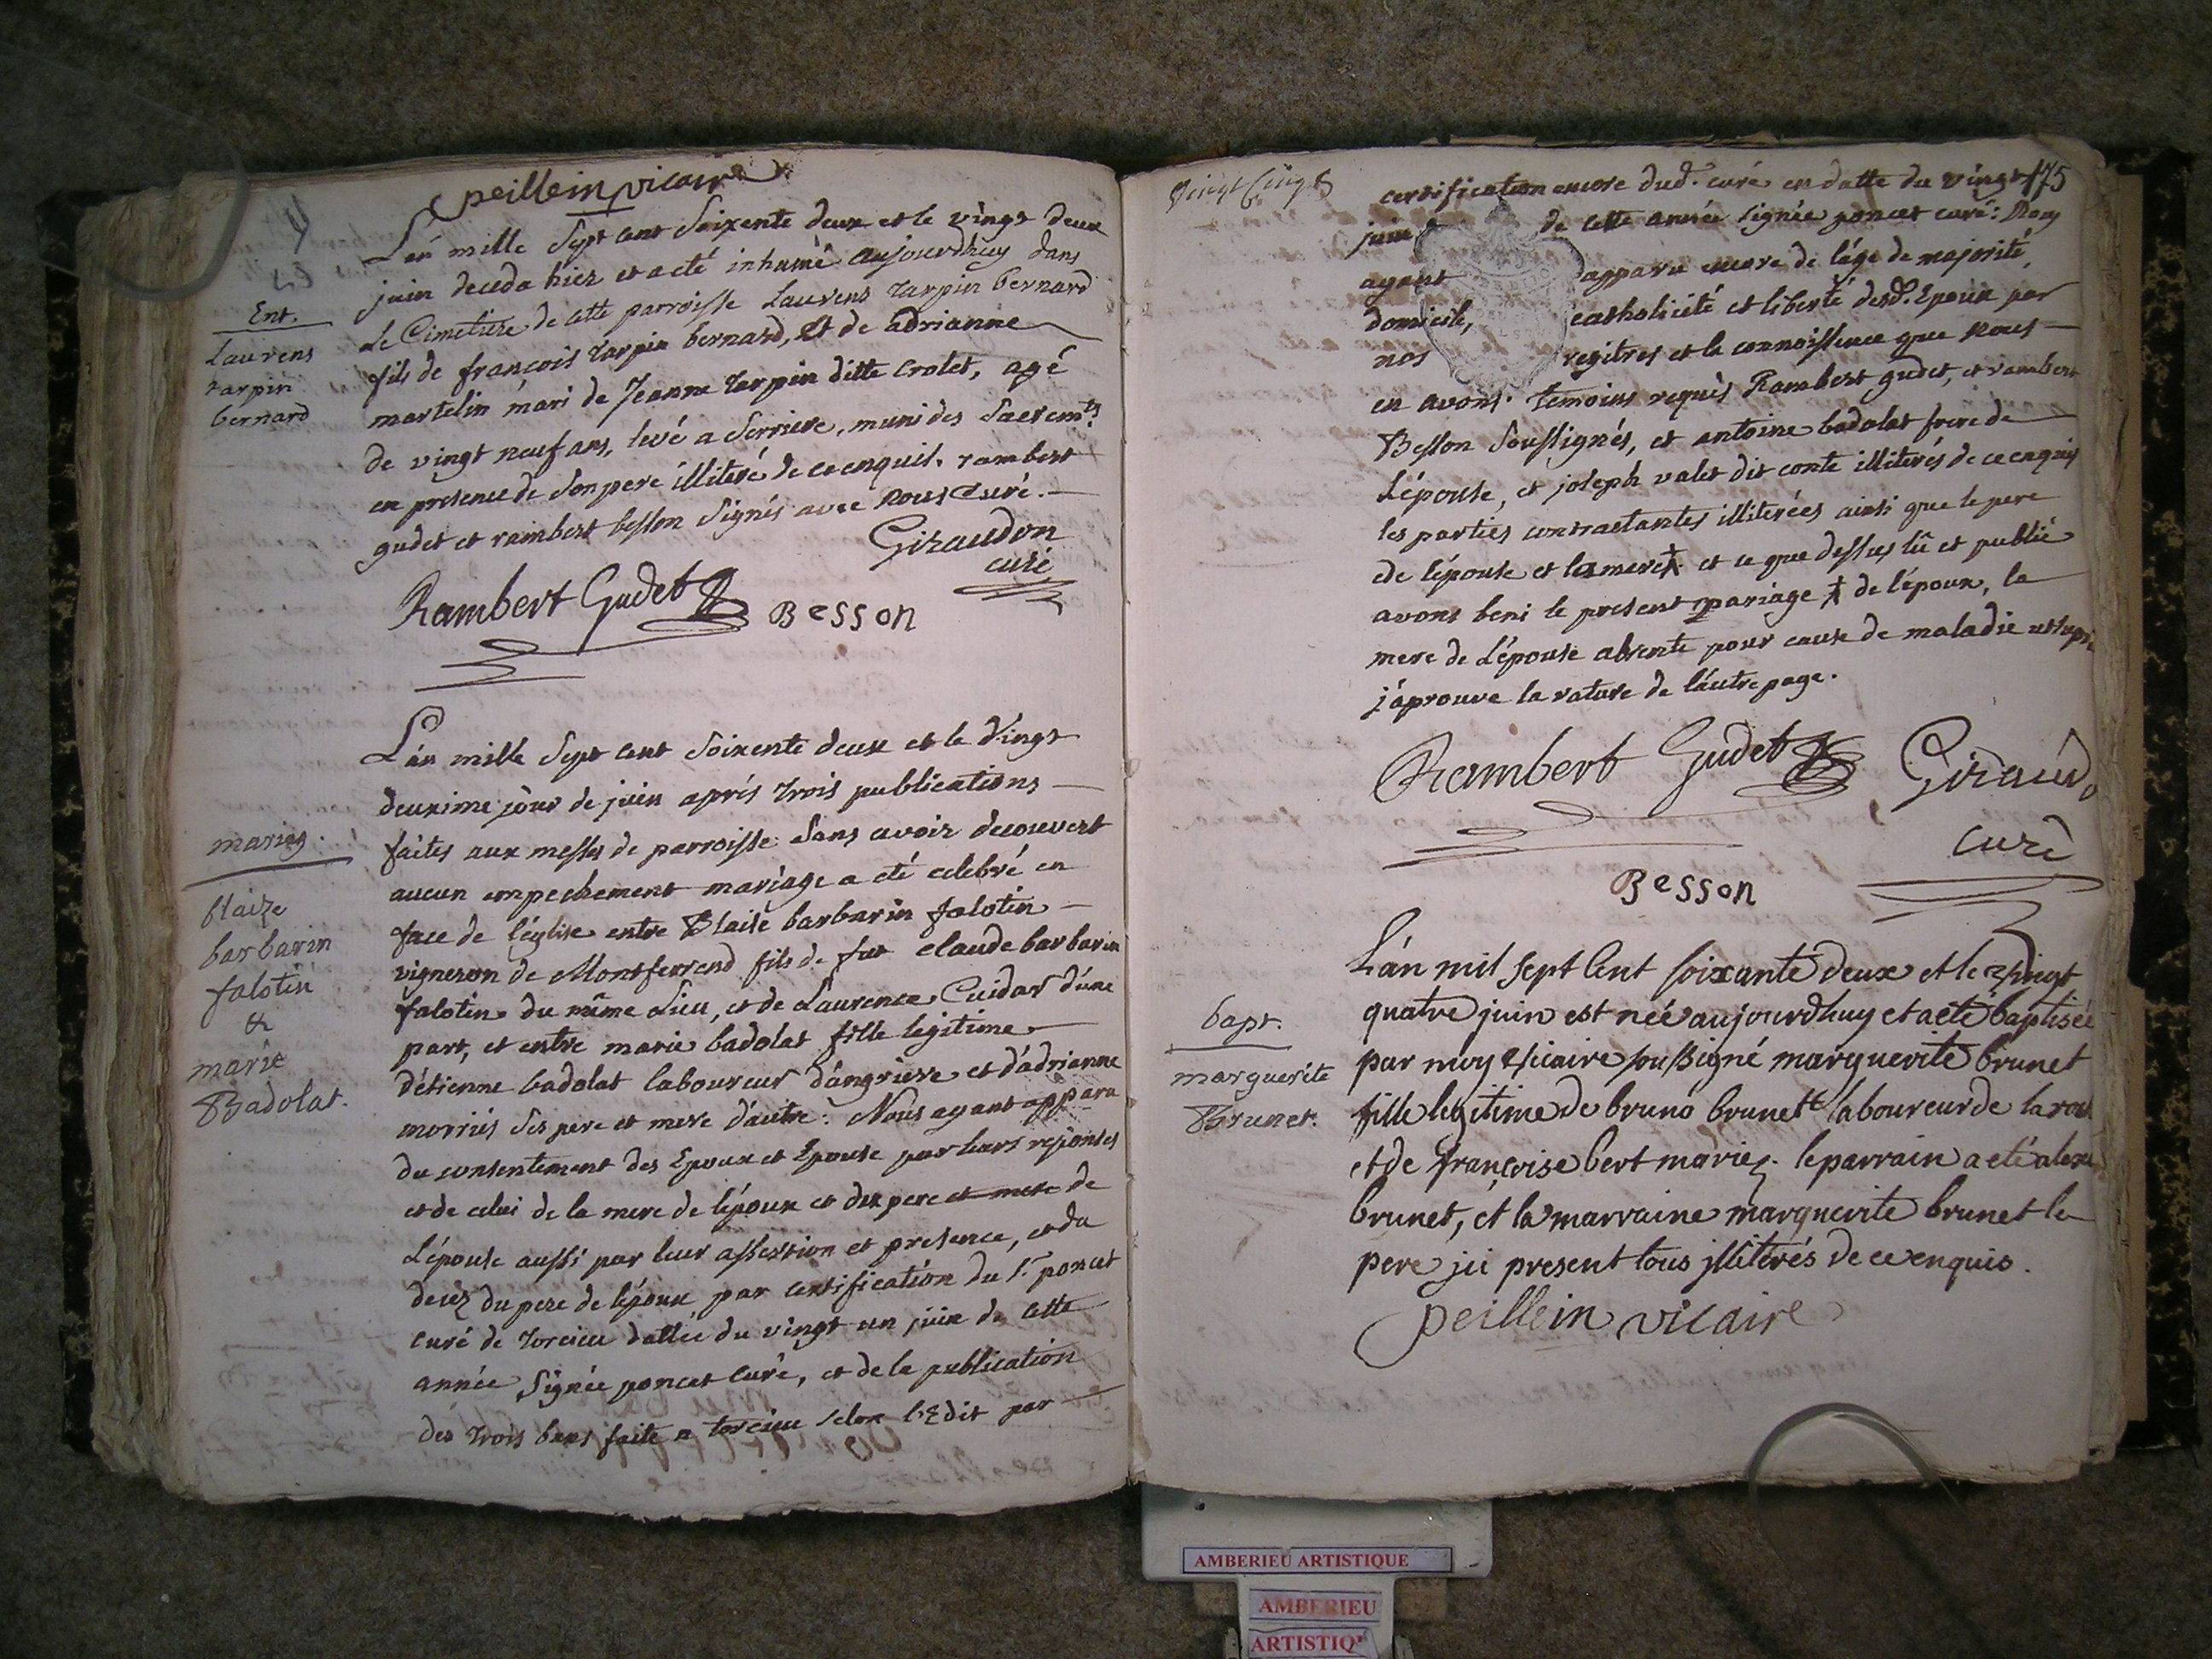 peillein vicaire
L'an mille Sept cent Soixente deux et le vingt deux
juin deceda hier et a eté inhumé aujourdhuy dans
Le Cimetiere de cette parroisse Laurens tarpin bernard
fils de françois tarpin bernard, et de adrianne
martelin mari de Jeanne tarpin ditte crolet, agé
de vingt neuf ans, levé a Serriere, muni des Sacremts.
en presence de Son pere illiteré de ce enquit. rambert
gudet et rambert besson Signés avec nous Curé.
Giraudon
curé
Rambert Gudet
Besson
Ent.
Laurens
tarpin
bernard
L'an mille Sept cent Soixente deux et le Vingt
deuxime jour de juin aprés trois publications
faites aux messes de parroisse Sans avoir decouvert
aucun empechement mariage a eté celebré en
face de l'église entre Blaise barbarin falotin
vigneron de Montferrend fils de fut claude barbarin
falotin du même Lieu, et de Laurence Cuidat d'une
part, et entre marie badolat fille legitime
d'étienne badolat laboureur d'angriere et d'adrianne
morriés Ses pere et mere d'autre: Nous ayant apparu
du consentement des Epoux et Epouse par leurs reponses
et de celui de la mere de l'époux et du pere et mere de
L'épouse aussi par leur assertion et presence, et du
decez du pere de l'époux par certification du Sr poncet
curé de torcieu dattée du vingt un juin de cette
année Signée poncet curé, et de la publication
des trois bans faite a torcieu selon l'Edit par
mariag.
blaize
barbarin
falotin
&
marie
Badolat.
Vingt cinq
175
certification encore dud. curé en datte du vingt
juin de cette année signée poncet curé: Nous
ayant apparu encore de l'áge de majorité,
domicile, catholicité et liberté desd. Epoux par
nos regitres et la connoissance que nous
en avons. temoins requis Rambert gudet, et rambert
Besson Soussignés, et antoine badolat frere de
L'épouse, et joseph valet dit conte illiterés de ce enquis
les parties contractantes illiterées ainsi que le pere
de l'épouse et la mere ‡ et ce que dessus lû et publié
avons beni le present mariage ‡ de l'époux, la
mere de L'épouse absente pour cause de maladie ut supra
j'áprouve la rature de láutre page.
Rambert Gudet
Giraudo
curé
Besson
L'án mil sept Cent soixante deux et le vingt
quatre juin est née aujourdhuy et a eté baptisée
par moy vicaire soussigné marguerite brunet
fille legitime de bruno brunet laboureur de la rou
et de françoise bert mariez. le parrain a eté alexi
brunet, et la marraine marguerite brunet le
pere jci present tous jlliterés de ce enquis.
peillein vicaire
bapt.
marguerite
Brunet.
AMBERIEU ARTISTIQUE
AMBERIEU
ARTISTIQ